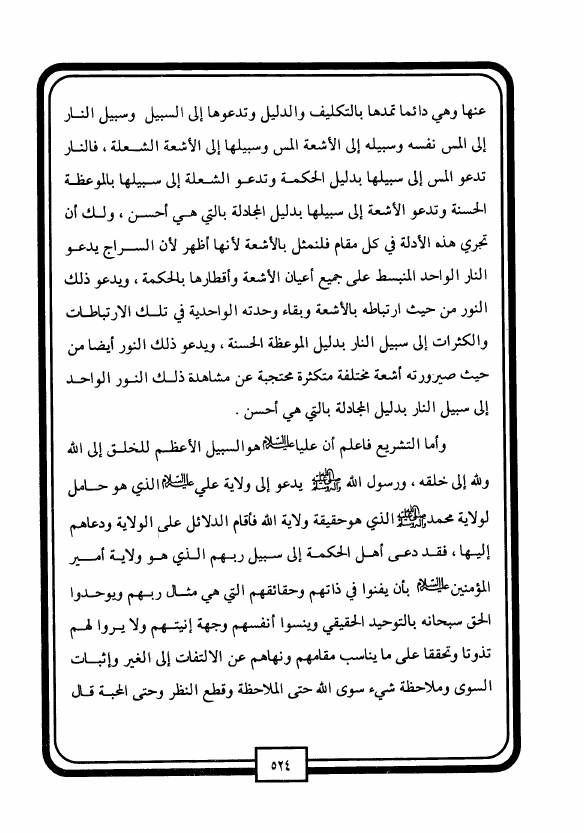 عنها وهي دائما تمدها بالتكليف والدليل وتدعوها إلى السبيل وسبيل النار
إلى المس نفسه وسبيله إلى الأشعة المس وسبيلها إلى الأشعة الشعلة ، فالنار
تدعو المس إلى سبيلها بدليل الحكمة وتدعو الشعلة إلى سبيلها بالموعظة
الحسنة وتدعو الأشعة إلى سبيلها بدليل المجادلة بالتي هي أحسن ، ولك أن
تجري هذه الأدلة في كل مقام فلنمثل بالأشعة لأنها أظهر لأن السراج يدعو
النار الواحد المنبسط على جميع أعيان الأشعة وأقطارها بالحكمة ، ويدعو ذلك
النور من حيث ارتباطه بالأشعة وبقاء وحدته الواحدية في تلك الارتباطات
والكثرات إلى سبيل النار بدليل الموعظة الحسنة ، ويدعو ذلك النور أيضا من
حيث صيرورته أشعة مختلفة متكثرة محتجبة عن مشاهدة ذلك النور الواحد
إلى سبيل النار بدليل المجادلة بالتي هي أحسن .
وأما التشريع فاعلم أن عليا عليه السلام هو السبيل الأعظم للخلق إلى الله
ولله إلى خلقه ، ورسول الله صلى الله عليه وآله وسلم يدعو إلى ولاية علي عليه السلام الذي هو حامل
لولاية محمد صلى الله عليه وآله وسلم الذي هو حقيقة ولاية الله فأقام الدلائل على الولاية ودعاهم
إليها ، فقد دعى أهل الحكمة إلى سبيل ربهم الذي هو ولاية أمير
المؤمنين عليه السلام بأن يفنوا في ذاتهم وحقائقهم التي هي مثال ربهم ويوحدوا
الحق سبحانه بالتوحيد الحقيقي وينسوا أنفسهم وجهة إنيتهم ولا يروا لهم
تذوتا وتحققا على ما يناسب مقامهم ونهاهم عن الالتفات إلى الغير وإثبات
السوى وملاحظة شيء سوى الله حتى الملاحظة وقطع النظر وحتى المحبة قال
٥٢٤